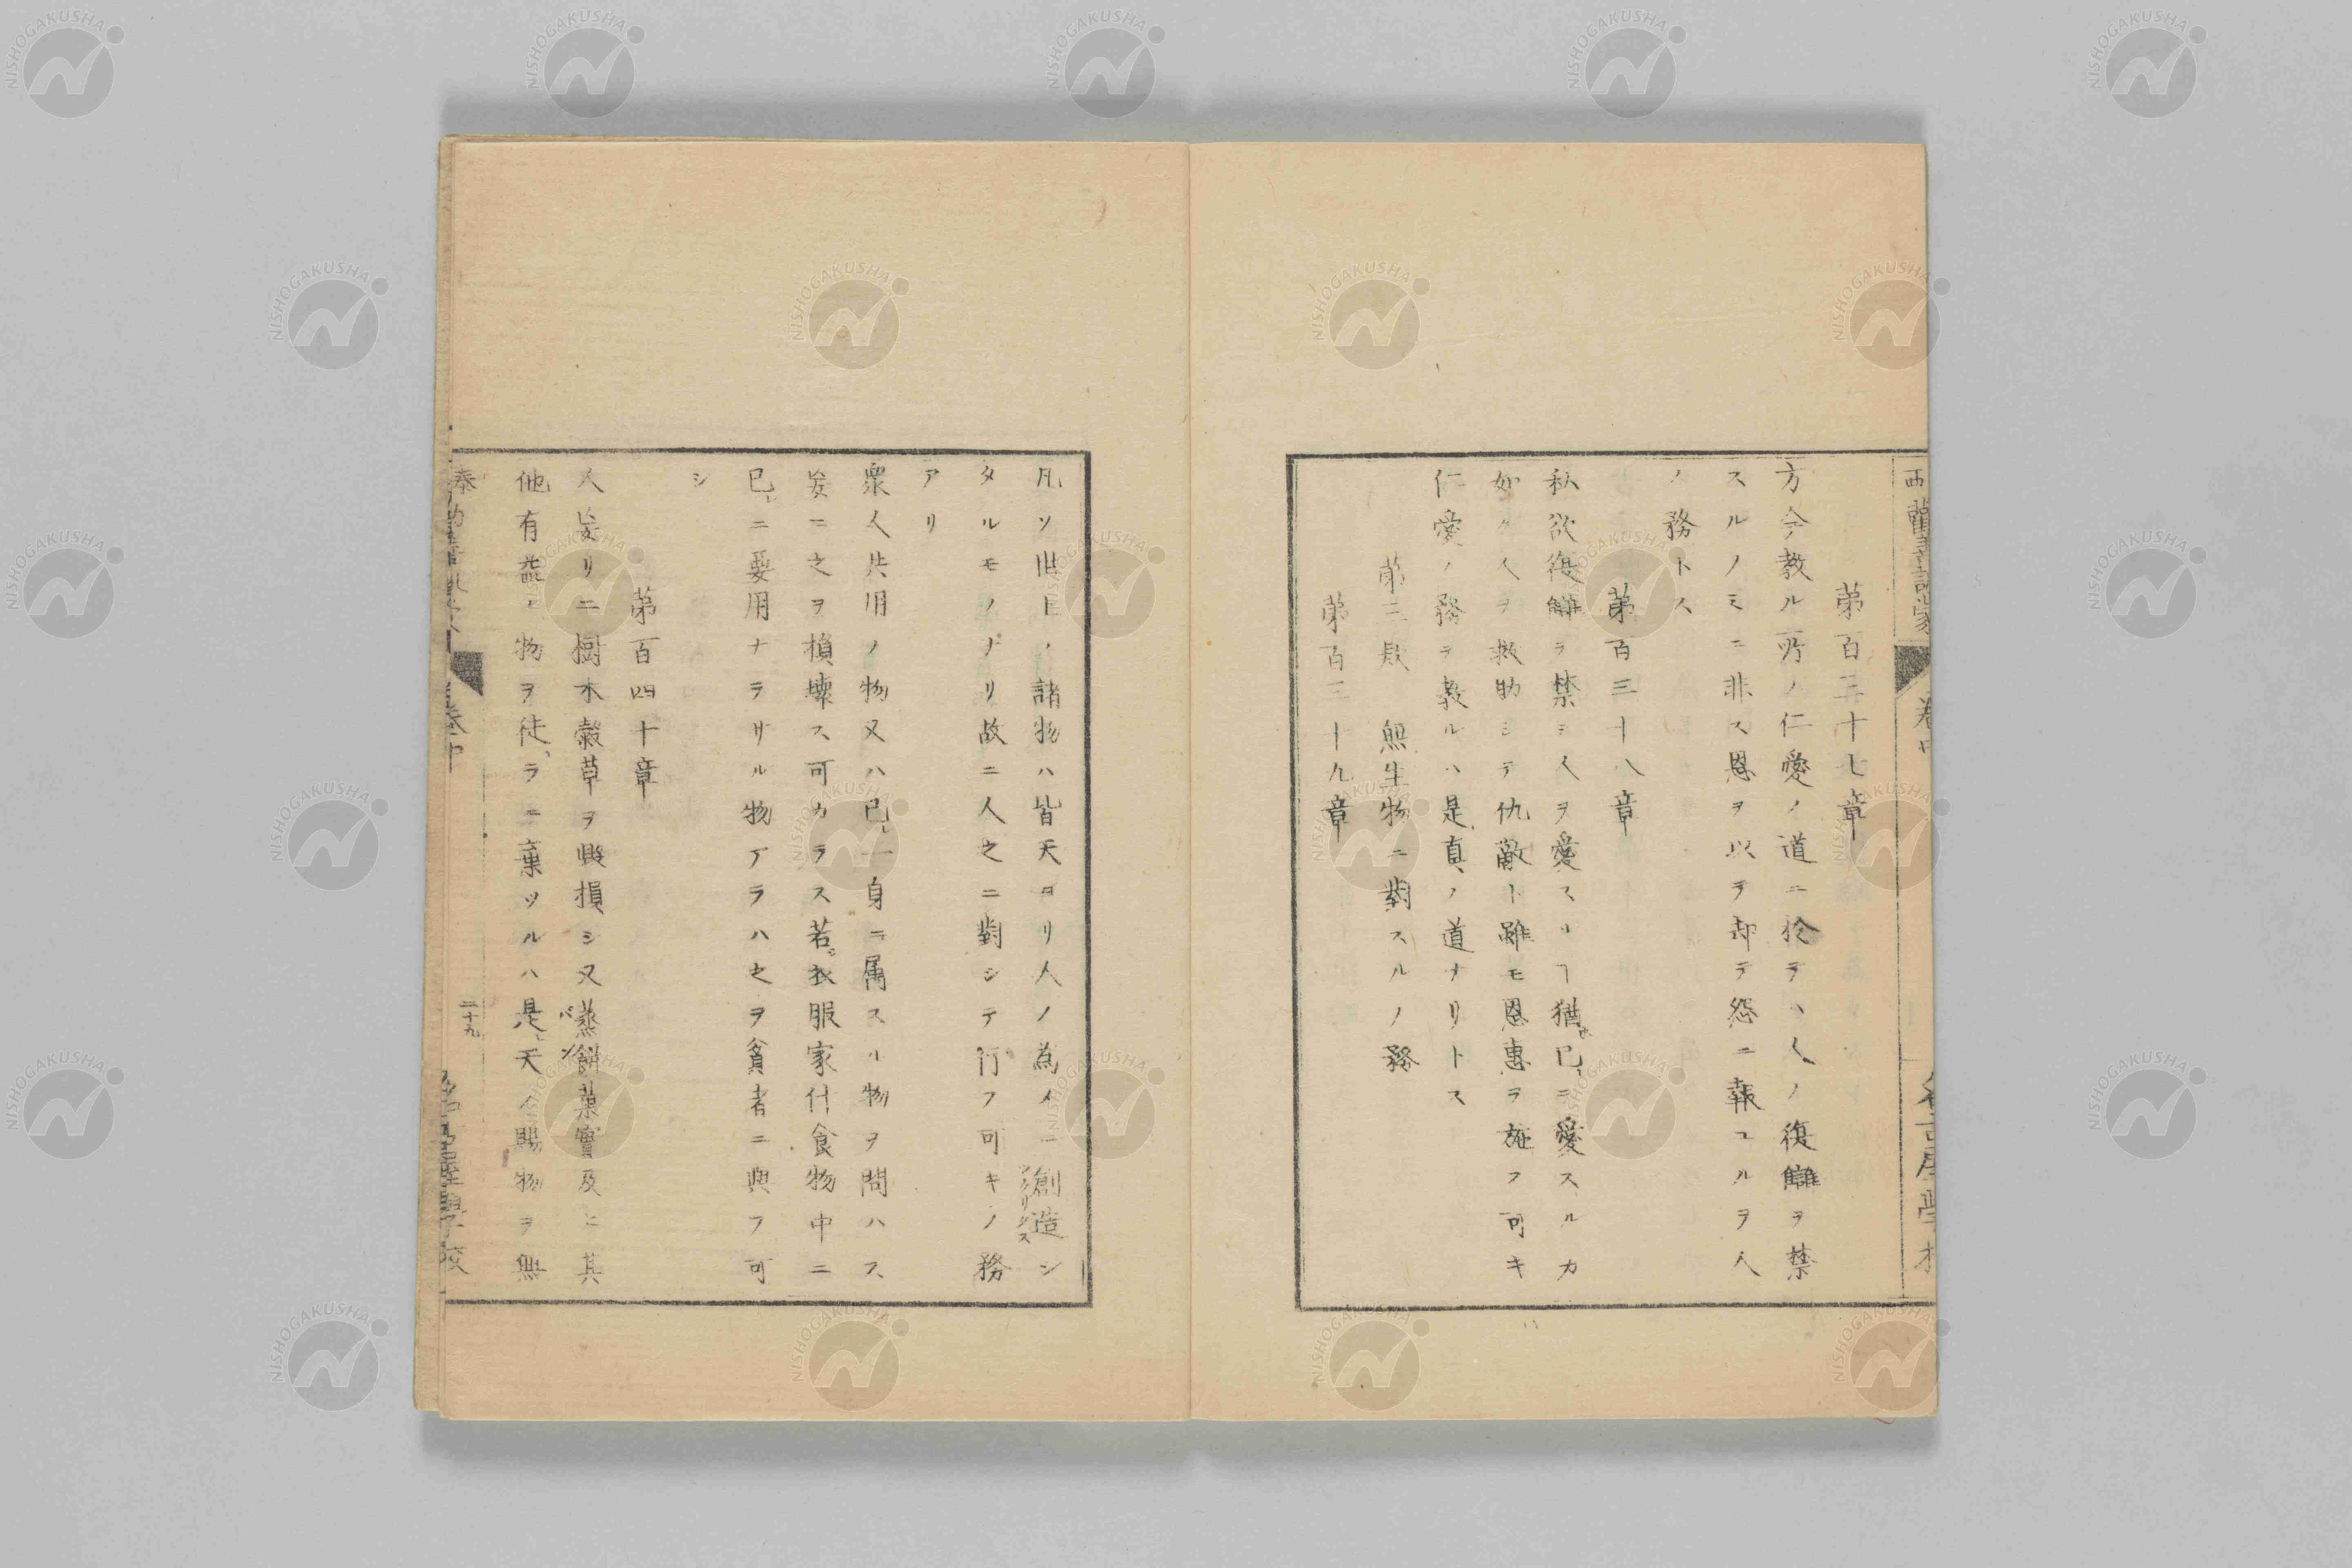 第百三十七章
方今教ル所ノ仁愛ノ道ニ於テハ人ノ復讎ヲ禁
スルノミニ非ス恩ヲ以テ却テ怨ニ報ユルヲ人
ノ務トス
第百三十八章
私欲復讎ヲ禁シ人ヲ愛スルヿ猶己ヲ愛スルカ
如ク人ヲ救助シテ仇敵ト雖モ恩惠ヲ施フ可キ
仁愛ノ務ヲ教ルハ是真ノ道ナリトス
第三款 無生物ニ對スルノ務
第百三十九章
凡ソ世上ノ諸物ハ皆天ヨリ人ノ為メニ創造シ
タルモノナリ故ニ人之ニ對シテ行フ可キノ務
アリ
衆人共用ノ物又ハ己一身ニ属スル物ヲ問ハス
妄ニ之ヲ損壊ス可カラス若シ衣服家什食物中ニ
己レニ要用ナラサル物アラハ之ヲ貧者ニ與フ可
シ
第百四十章
人妄リニ樹木穀草ヲ毀損シ又蒸餅菓實及ヒ其
他有益ノ物ヲ徒ラニ棄ツルハ是レ天ノ賜物ヲ無
卷中
二十九
名古屋學校
NISHOGAKUSHA